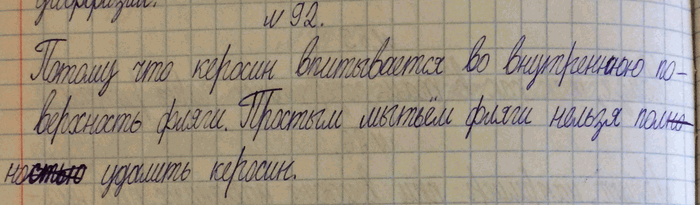 диффузии.
№92.
Потому что керосин впитывается во внутреннюю по-
верхность фляги. Простым мытьём фляги нельзя полно
ностью удалить керосин.